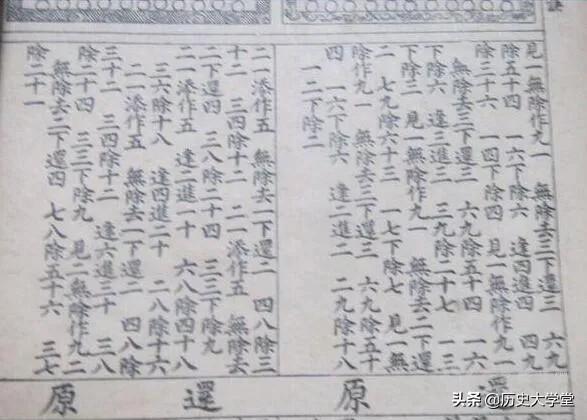 見一無除作九一　無除去三下還三　六九
除五十四　一六下除六　逢四進四　四九
除三十六　一四下除四　見一無除作九一
無除去三下還三　六九除五十四　一六
下除六　逢三進三　三九除二十七　一三
下除三　見一無除作九一　無除去二下還
二　七九除六十三　一七下除七　見一無
除作九一　無除去三下還三　六九除五十
四　一六下除六　逢二進二　二九除十八
一二下除二
還原
二一添作五　無除去一下還二　四八除三
十二　三四除十二　二一添作五　無除去
二下還四　三八除二十四　三三下除九
二一添作五　逢二進一十　六八除四十八
三六除十八　逢四進二十　二八除十六
二一添作五　無除去一下還二　四八除
三十二　三四除十二　逢六進三十　三八
除二十四　三三下除九　見二無除作九二
無除去二下還四　七八除五十六　三七
除二十一
還原
头条 @历史大学堂